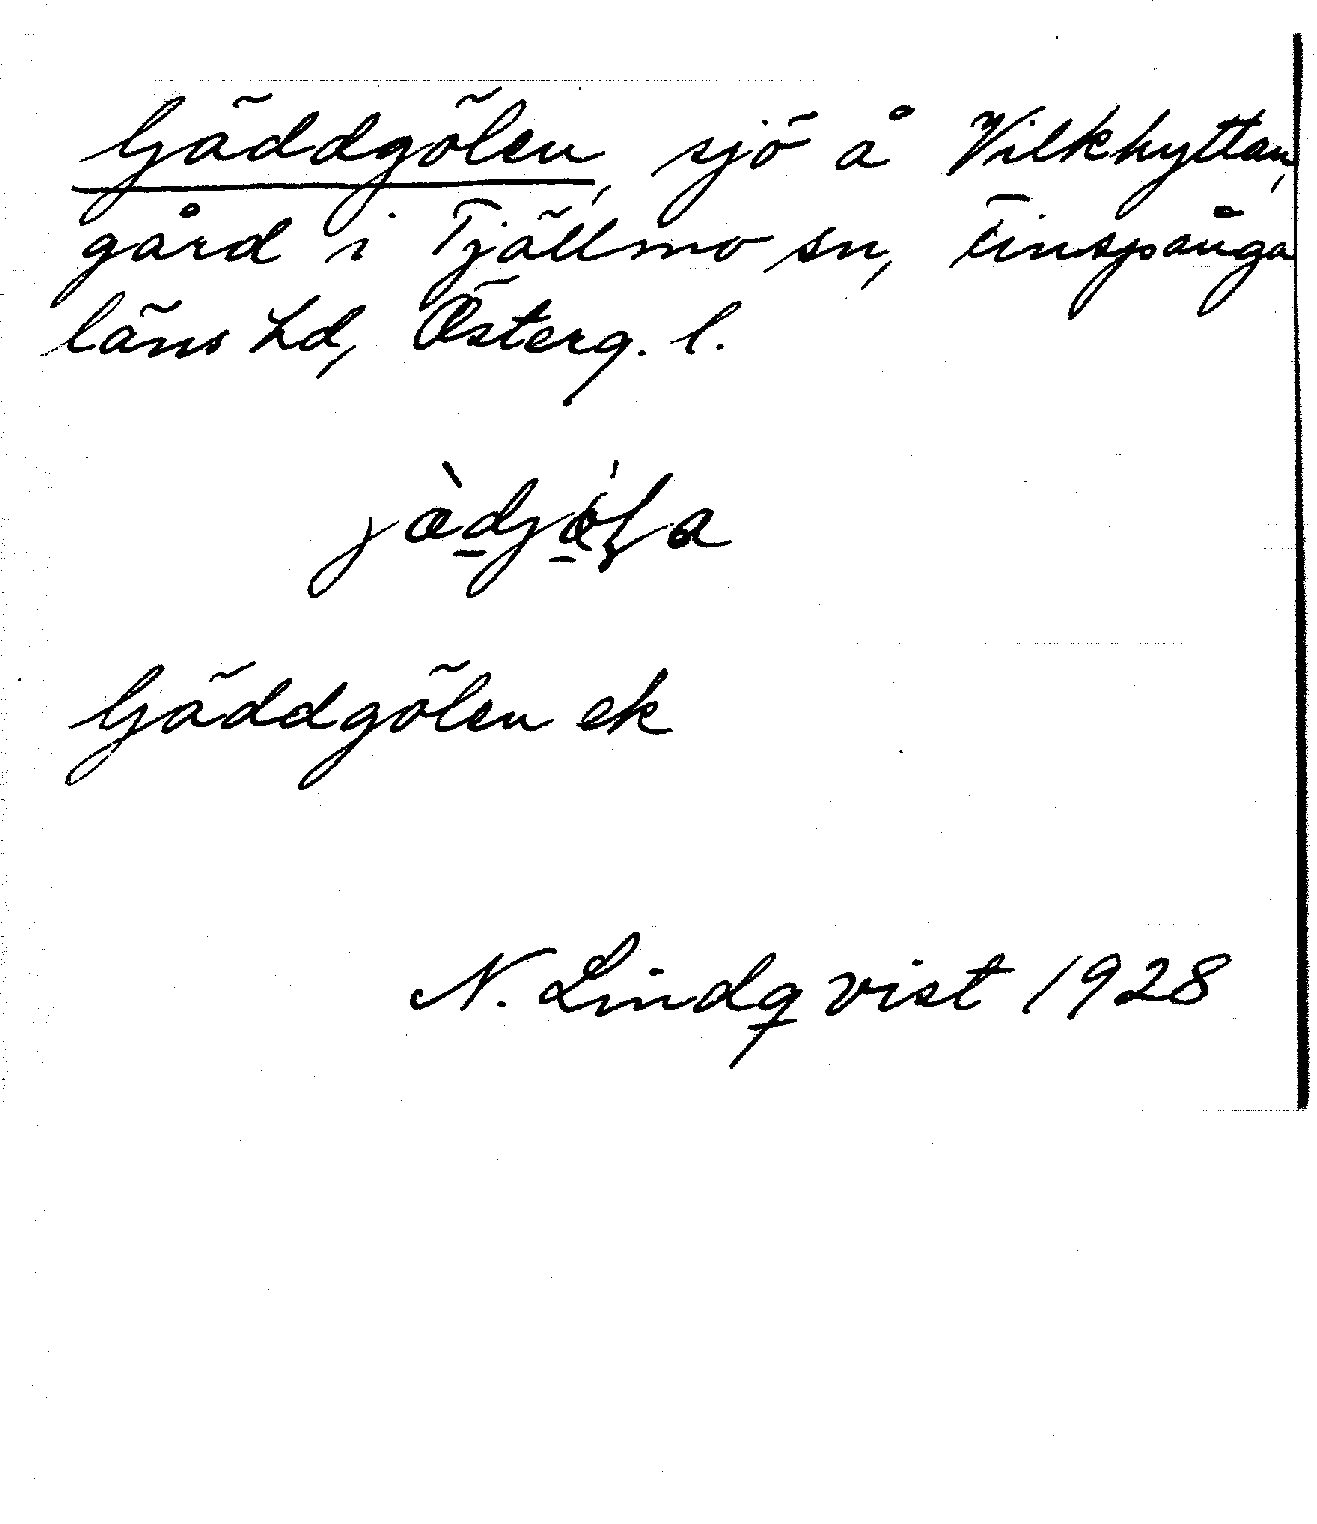 Gäddgölen, sjö å Vilkhyttan,
gård i Tjällmo sn, Finspånga
läns hd, Österg. l.
Gäddgölen ek
N. Lindqvist 1928